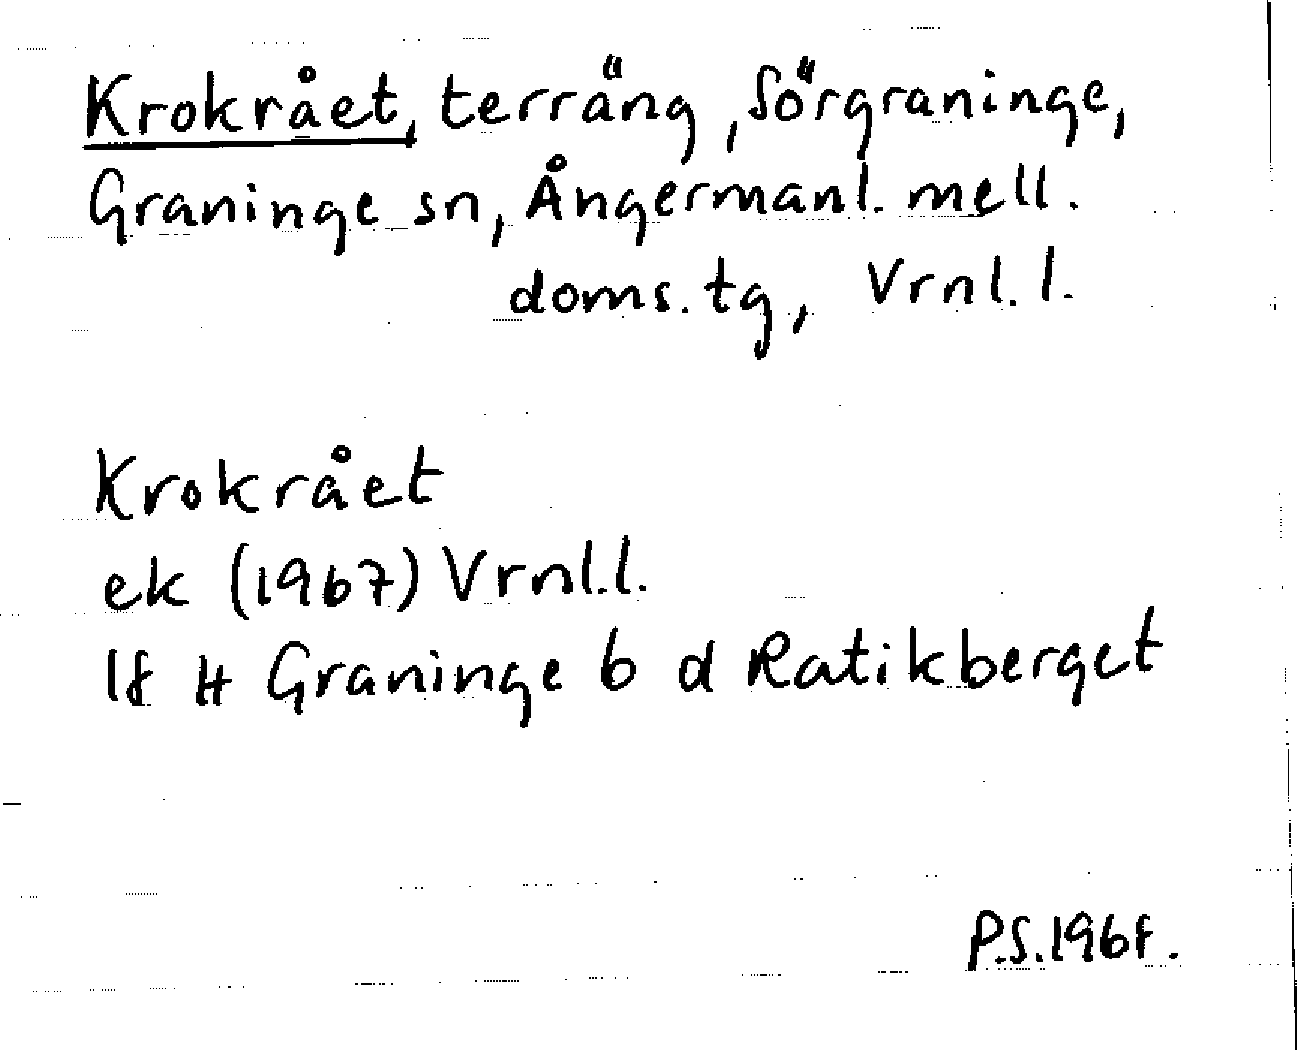 Krokrået, terräng, Sörgraninge,
Graninge sn, Ångermanl. mell.
doms. tg, Vrnl. l.
Krokrået
ek (1967) Vrnl.l.
Graninge b d Ratikberget
P.S.